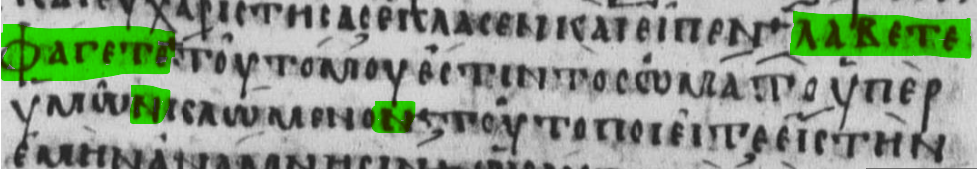 ΚΑΙΕΥΧΑΡΙСΤΗСΑСΕΚΛΑСΕΝΚΑΙΕΙΠΕΝ· ΛΑΒΕΤΕ
ΦΑΓΕΤΕ·ΤΟΥΤΟΜΟΥΕСΤΙΝΤΟСΩΜΑ·ΤΟΥΠΕΡ
ΥΜΩΝΚΛΩΜΕΝΟΝ·ΤΟΥΤΟΠΟΙΕΙΤΕΕΙСΤΗΝ
ΕΜΗΝΑΝΑΜΝΗСΙΝ